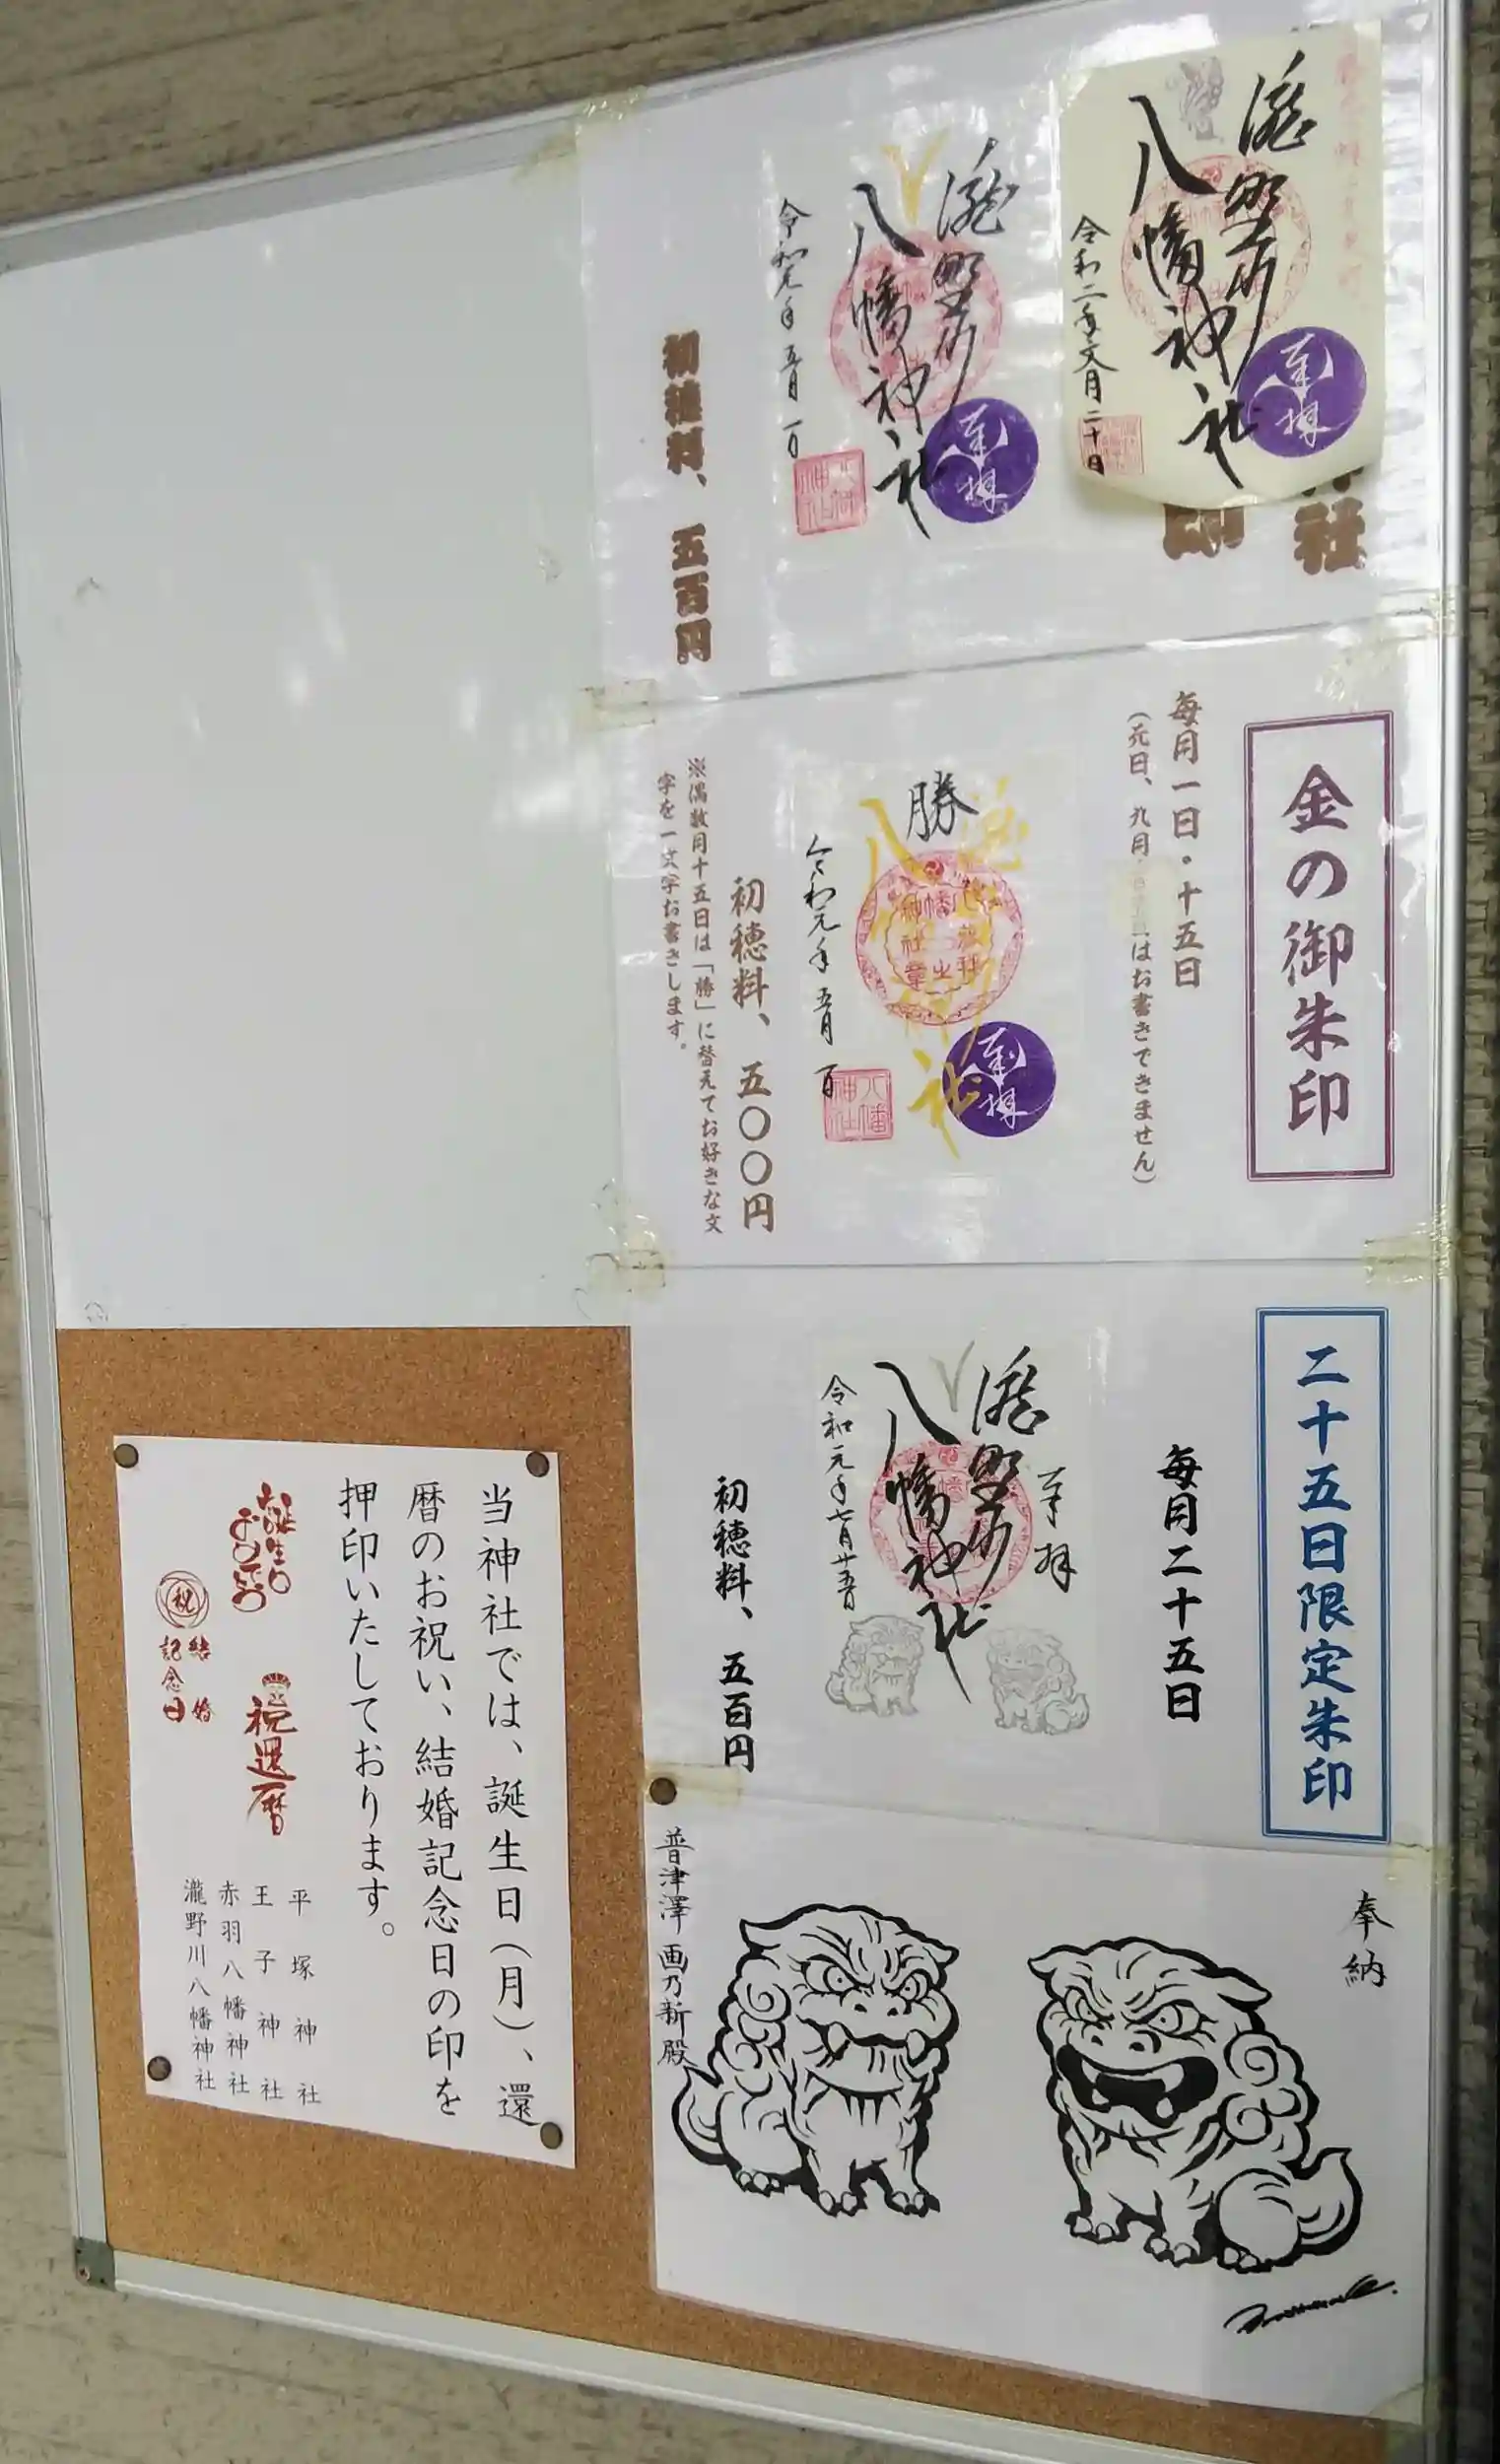 瀧野川
八幡神社
奉拝
令和二年文月二十日
社
印
瀧野川
八幡神社
奉拝
令和元年五月一日
八幡神社
初穂料、五百円
金の御朱印
毎月一日・十五日
(元日、九月
はお書きできません)
勝
奉拝
令和元年五月一日
八幡神社
初穂料、五〇〇円
※偶数月十五日は「勝」に替えてお好きな文
字を一文字お書きします。
二十五日限定朱印
毎月二十五日
奉拝
瀧野川
八幡神社
令和元年七月廿五日
初穂料、五百円
奉納
普津澤画乃新殿
当神社では、誕生日(月)、還
暦のお祝い、結婚記念日の印を
押印いたしております。
お誕生日
おめでとう
祝還暦
祝
結婚
記念日
平塚神社
王子神社
赤羽八幡神社
瀧野川八幡神社